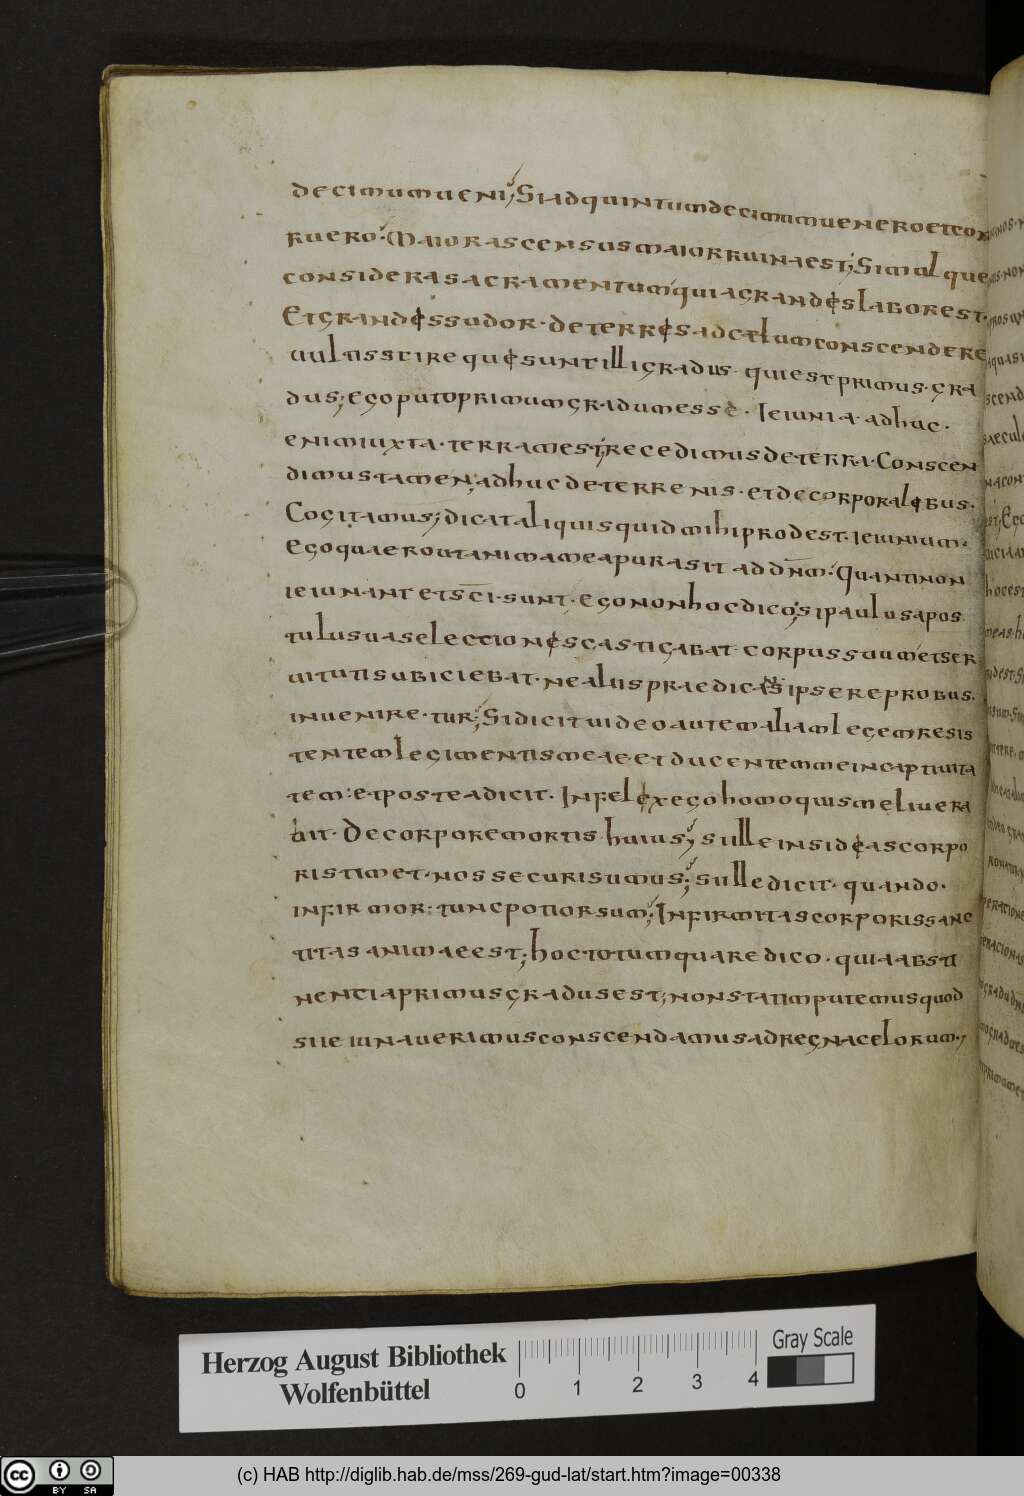 decimumueni; Siadquintumdecimumuenero etcon
ruero. Maiorascensusmaiorruinaest; Simulque
considerasacramentum quiagrandęslaborest.
Etgrandęssudor. deterręsadcaelumconscendere
uultisscire quęsuntilligradus. quiestprimus. gra
dus; egoputoprimumgradumesse. Ieiunia. adhuc.
enimiuxta. terramest; recedimusdeterra. Conscen
dimustamen; adhucdeterrenis. etdecorporalębus.
Cogitamus; dicataliquisquidmihiprodest. Ieiunium.
egoquaeroutanimameapurasit addnm. Quantinon
ieiunant etsci. sunt. egononhocdico; sipaulusapos
tulusuaselectionęscastigabat corpussuumetser
uitutisubiciebat. nealiispraedicansipsereprobus.
inuenire. tur; Sidicituideoautemaliamlegemresis
tentemlegimentismeae. etducentemmeincaptiuita
tem: etposteadicit. Infelęxegohomoquismeliuera
bit. Decorporemortis huius; sullęinsidęascorpo
ristimet. nossecurisumus; sulledicit. quando.
infirmor: tuncpotiorsum; Infirmitascorporissanc
titasanimaeest; hoctotumquaredico. quiaabsti
nentiaprimusgradusest; nonstatimputemusquod
siieiunauerimusconscendamusadregnacelorum;
Herzog August Bibliothek
Wolfenbüttel
0 1 2 3 4
Gray Scale
cc BY SA
(c) HAB http://diglib.hab.de/mss/269-gud-lat/start.htm?image=00338